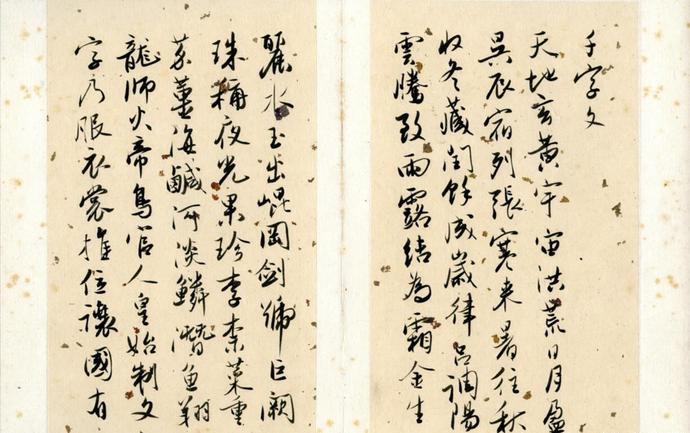 千字文
天地玄黄宇宙洪荒日月盈
昃辰宿列張寒来暑往秋
收冬藏閏餘成歲律吕調陽
雲騰致雨露结為霜金生
麗水玉出崐岡劍號巨闕
珠稱夜光果珍李柰菜重
芥薑海鹹河淡鱗潛魚翔
龍師火帝鳥官人皇始制文
字乃服衣裳推位讓國有